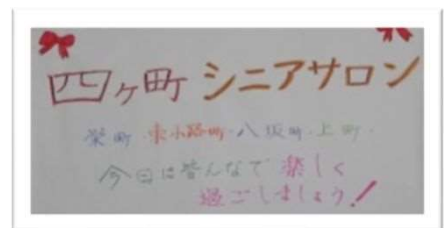 四ヶ町 シニアサロン
栄町・東小路町・八坂町・上町・
今日は皆んなで 楽しく
過ごしましょう!